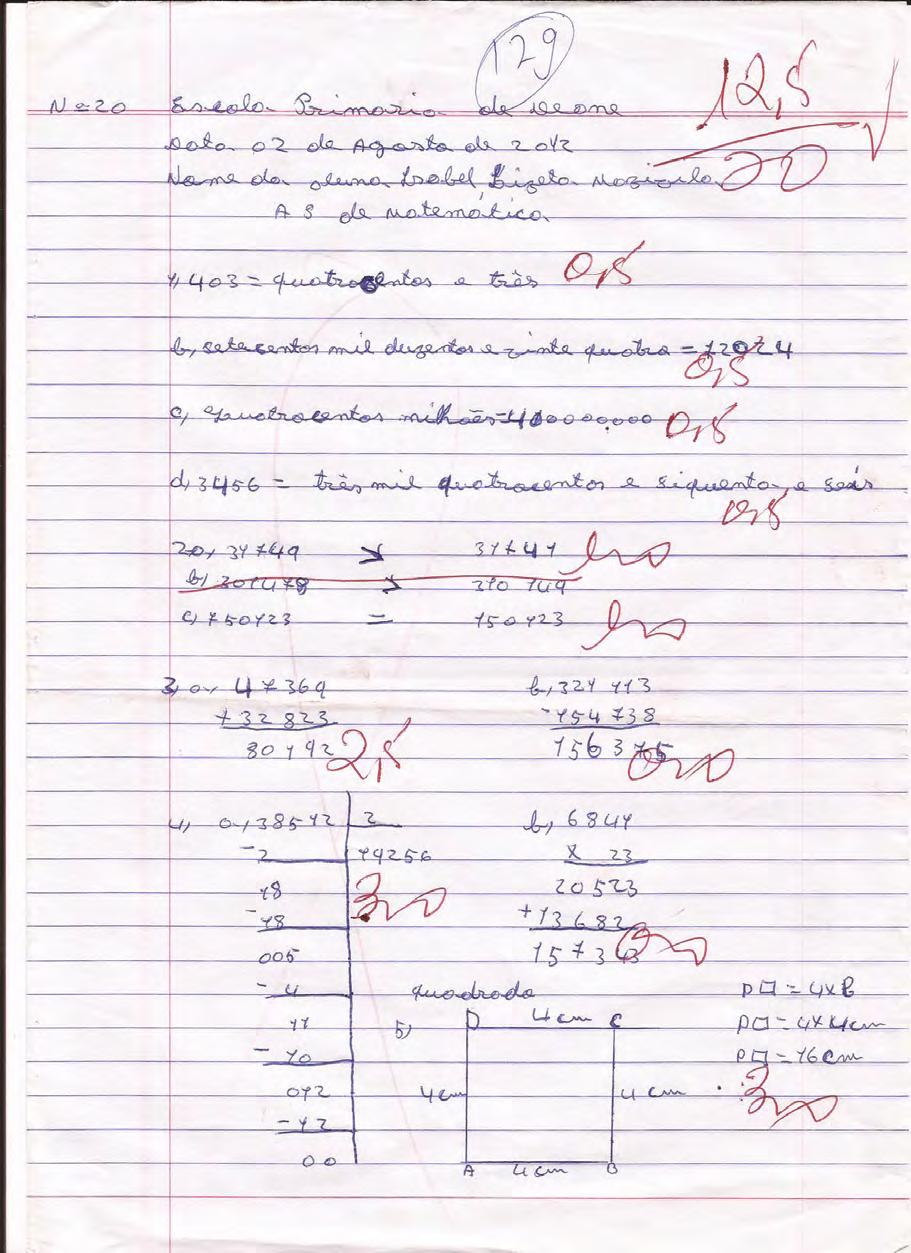 129
12,5
20
Nº=20 Escola Primaria de Leone
Data 02 de Agosta de 2012
Name da aluna Isabel Lizeta
AS de Matemática
1, 403 = quatrocentos e três 0,5
b, setesentos mil duzentos e vinte quatra = 72024
0,5
c, Quatrocentos milhões = 400000000 0,5
d, 3456 = três mil quatrocentos e siquenta e seis
0,5
2a, 31749 > 31741
b) 301478 > 310749
c, 750123 = 150123
3, a, 47369
+32 823
80192 2,5
b, 321 113
-154 738
156375 0,0
4, a, 38512 2
-2 19256
18 3,0
-18
005
-4
11
-10
012
-12
00
b, 6841
X 23
20523
+13682
157343 0,0
quadrada
5)
D 4cm C
4cm 4cm
A 4cm B
P□ = 4xl
P□ = 4x4cm
P□ = 16cm
3,0